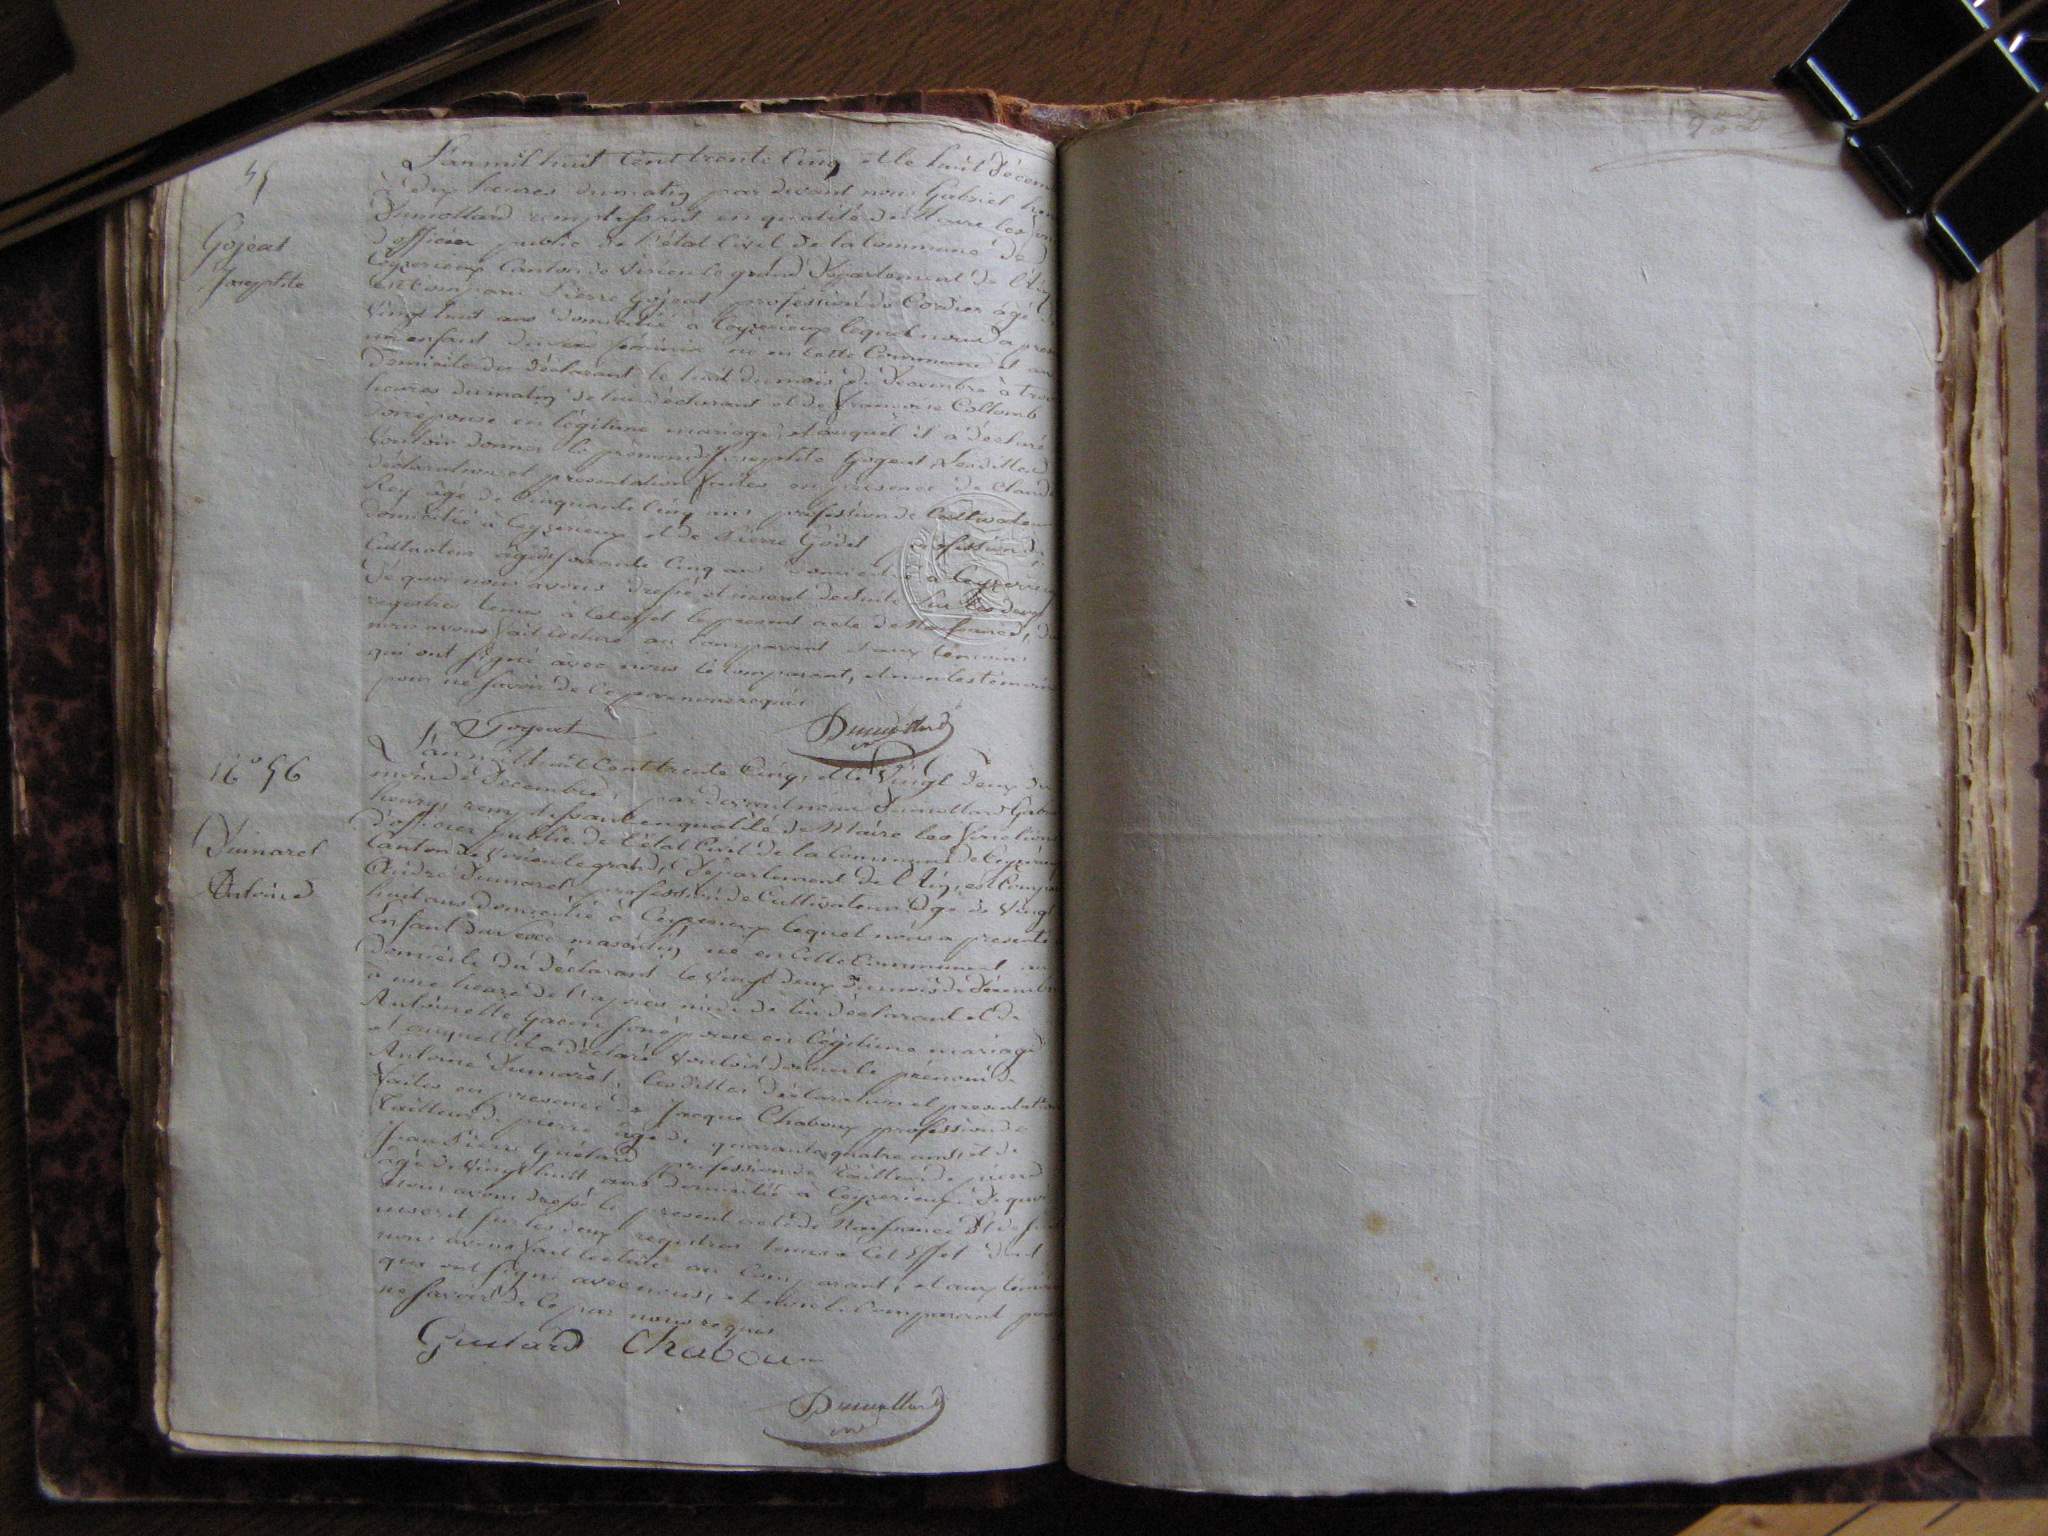 45
Gojeat
Josephte
L'an mil huit cent trente cinq et le huit décem
à dix heures du matin par devant nous Gabriel hen
Dumollard remplissant en qualité de Maire les fon
d'officier public de l'état Civil de la Commune de
Ceyzerieux Canton de Virieu le grand Département de l'Ain
est comparu Pierre Gojeat profession de Cordier âgé de
vingt huit ans domicilié à Ceyzerieux lequel nous a presen
un enfant du sexe féminin né en cette Commune et au
domicile du déclarant le huit du mois de Decembre à trois
heures du matin de lui déclarant et de françoise Collomb
son épouse en légitime mariage, et auquel il a déclaré
vouloir donner le prénom de Josephte Gojeat, Lesdittes
déclaration et presentation faites en présence de Claude
Rey âgé de Cinquante Cinq ans profession de Cultivateur
domicilié à Ceyzerieux et de Pierre Godet profession de
Cultivateur âgé de soixante Cinq ans domicilié à Ceyzerieux
De quoi nous avons dressé et inscrit de suite sur les deux
registres tenus à cet effet le present acte de Naissance, du
nous avons fait lecture au comparant et aux témoins
qui ont signé avec nous le comparant, et non les témoins
pour ne savoir de ce par nous requis
Gojeat Dumollard
N° 56
Dumaret
Antoine
L'an mil huit Cent trente Cinq, et le Vingt Deux du
mois de Decembre, par devant nous Dumollard Gabri
henry, remplissant en qualité de Maire les fonctions
d'officier public de l'état Civil de la Commune de Ceyzérieux
Canton de Virieu le grand, Département de l'Ain, est Compar
André Dumaret profession de Cultivateur Age de Vingt
huit ans domicilié à Ceyzerieux lequel nous a presenté
Enfant du sexe masculin né en Cette Commune et au
domicile du déclarant le Vingt deux Du mois de Décembre
à une heure de l'après midi de lui déclarant et de
Antoinette son épouse en légitime mariage
et auquel il a déclaré vouloir donner le prénom de
Antoine Dumaret, Lesdittes déclaration et presentation
faites en presence de Jacque Chaboux profession de
Tailleur de pierre âgé de quarante quatre ans, et de
Jean Pierre Guétard profession de Tailleur de pierre
âgé de Vingt huit ans domicilié à Ceyzerieux De quoi
nous avons dressé le present acte de Naissance Et de suite
inscrit sur les deux registres tenus a Cet Effet dont
nous avons fait lecture au Comparant, et aux témoins
qui ont signé avec nous, et non le Comparant pour
ne savoir de Ce par nous requis
Guetard Chaboux
Dumollard